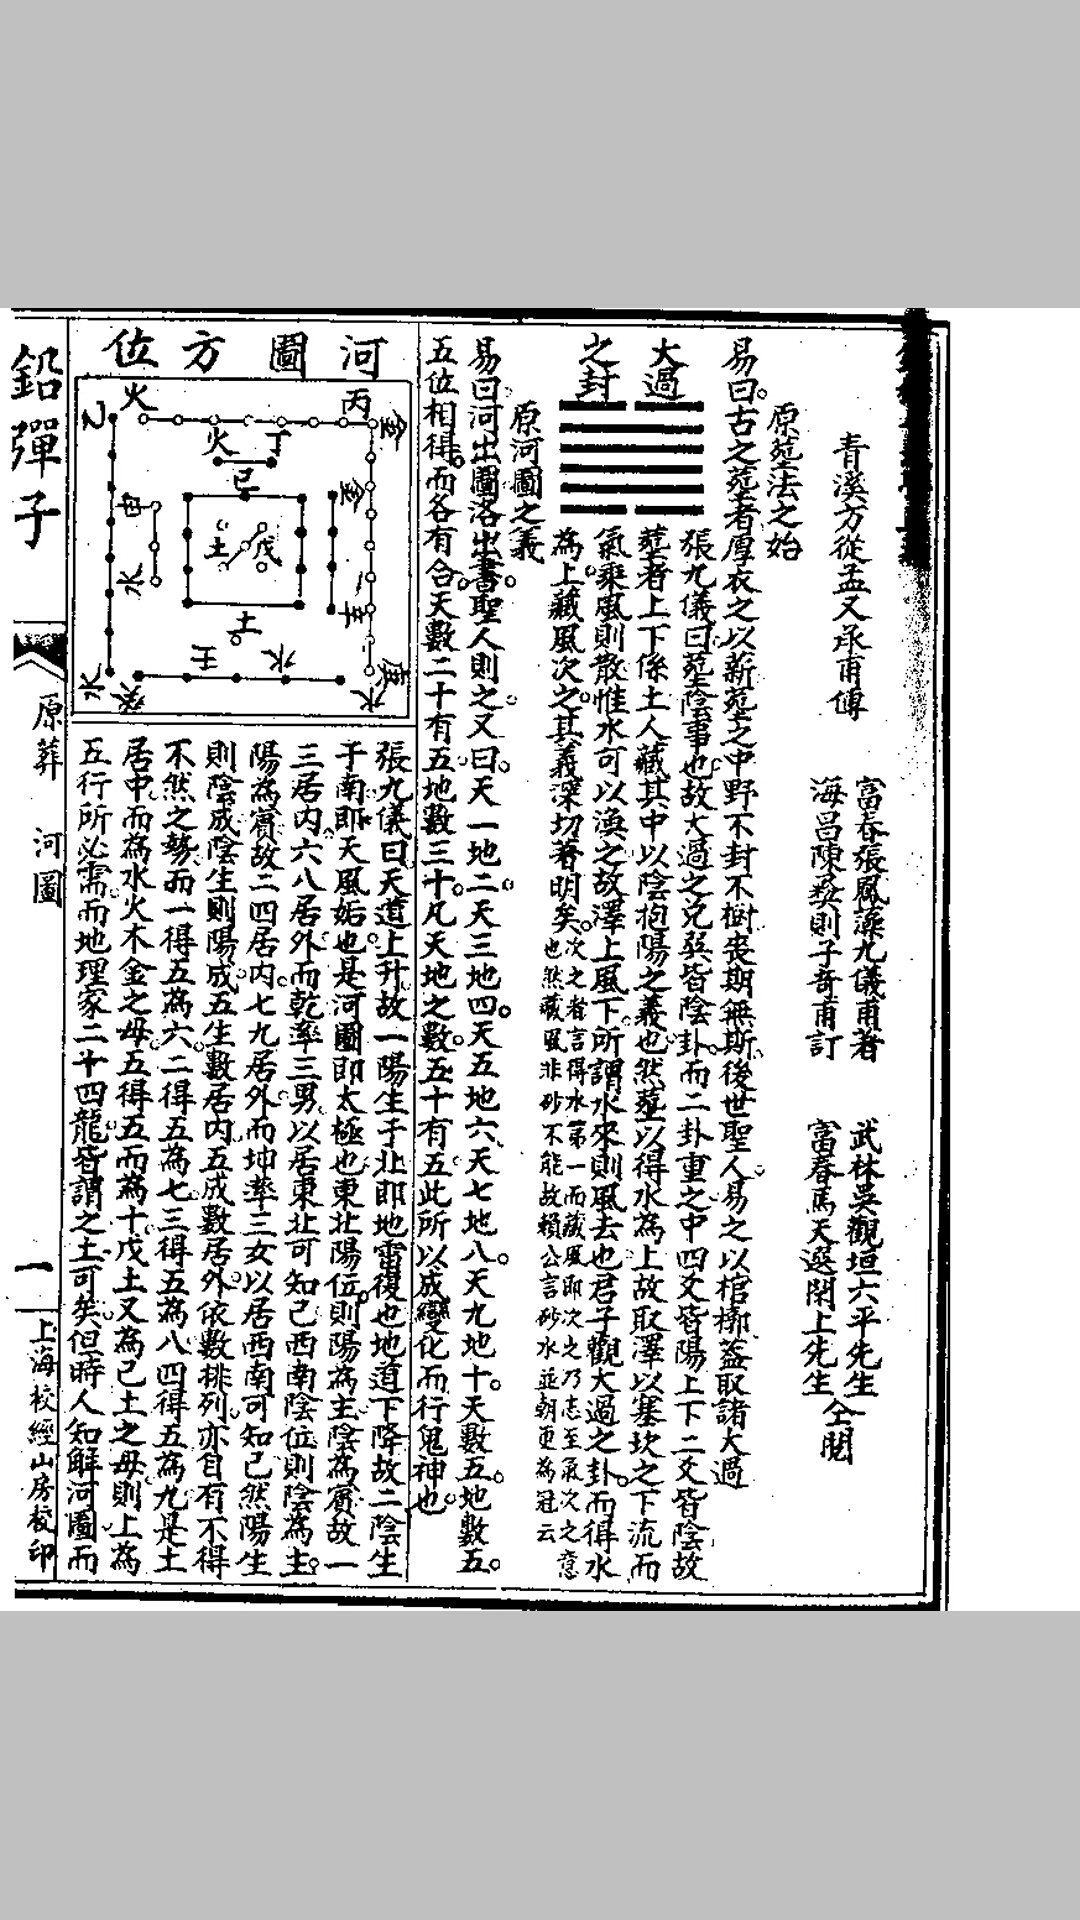 青溪方從孟又承甫傳
富春張鳳藻九儀甫著
海昌陳燮則子奇甫訂
武林吳觀垣六平先生
富春馬天選閑上先生
仝閱
原塟法之始
易曰古之塟者厚衣之以薪塟之中野不封不樹喪期無斯後世聖人易之以棺槨葢取諸大過
大過
之封
張九儀曰塟陰事也故大過之兌巽皆陰卦而二卦重之中四爻皆陽上下二爻皆陰故
塟者上下係土人藏其中以陰抱陽之義也然塟以得水為上故取澤以塞坎之下流而
氣乘風則散惟水可以渙之故澤上風下所謂水來則風去也君子觀大過之卦而得水
為上藏風次之其義深切著明矣
次之者言得水第一而藏風即次之乃志至氣次之意
也然藏風非砂不能故賴公言砂水並朝更為冠云
原河圖之義
易曰河出圖洛出書聖人則之又曰天一地二天三地四天五地六天七地八天九地十天數五地數五
五位相得而各有合天數二十有五地數三十凡天地之數五十有五此所以成變化而行鬼神也
河圖方位
火
丙
金
火
丁
己
金
土
戊
水
辛
土
壬
水
水
癸
水
庚
張九儀曰天道上升故一陽生于北即地雷復也地道下降故二陰生
于南即天風姤也是河圖即太極也東北陽位則陽為主陰為賓故一
三居内六八居外而乾率三男以居東北可知己西南陰位則陰為主
陽為賓故二四居内七九居外而坤率三女以居西南可知己然陽生
則陰成陰生則陽成五生數居内五成數居外依數排列亦自有不得
不然之勢而一得五為六二得五為七三得五為八四得五為九是土
居中而為水火木金之母五得五而為十戊土又為己土之母則上為
五行所必需而地理家二十四龍皆謂之土可矣但時人知解河圖而
鉛彈子
原葬
河圖
一
上海校經山房校印